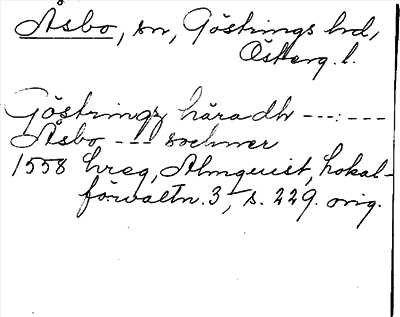 Åsbo, sn, Göstrings hrd,
Österg. l.
Göstringz häradh ---:---
Åsbo --- sochner
1558 hreg, Almquist, Lokal-
förvaltn. 3, s. 229. orig.